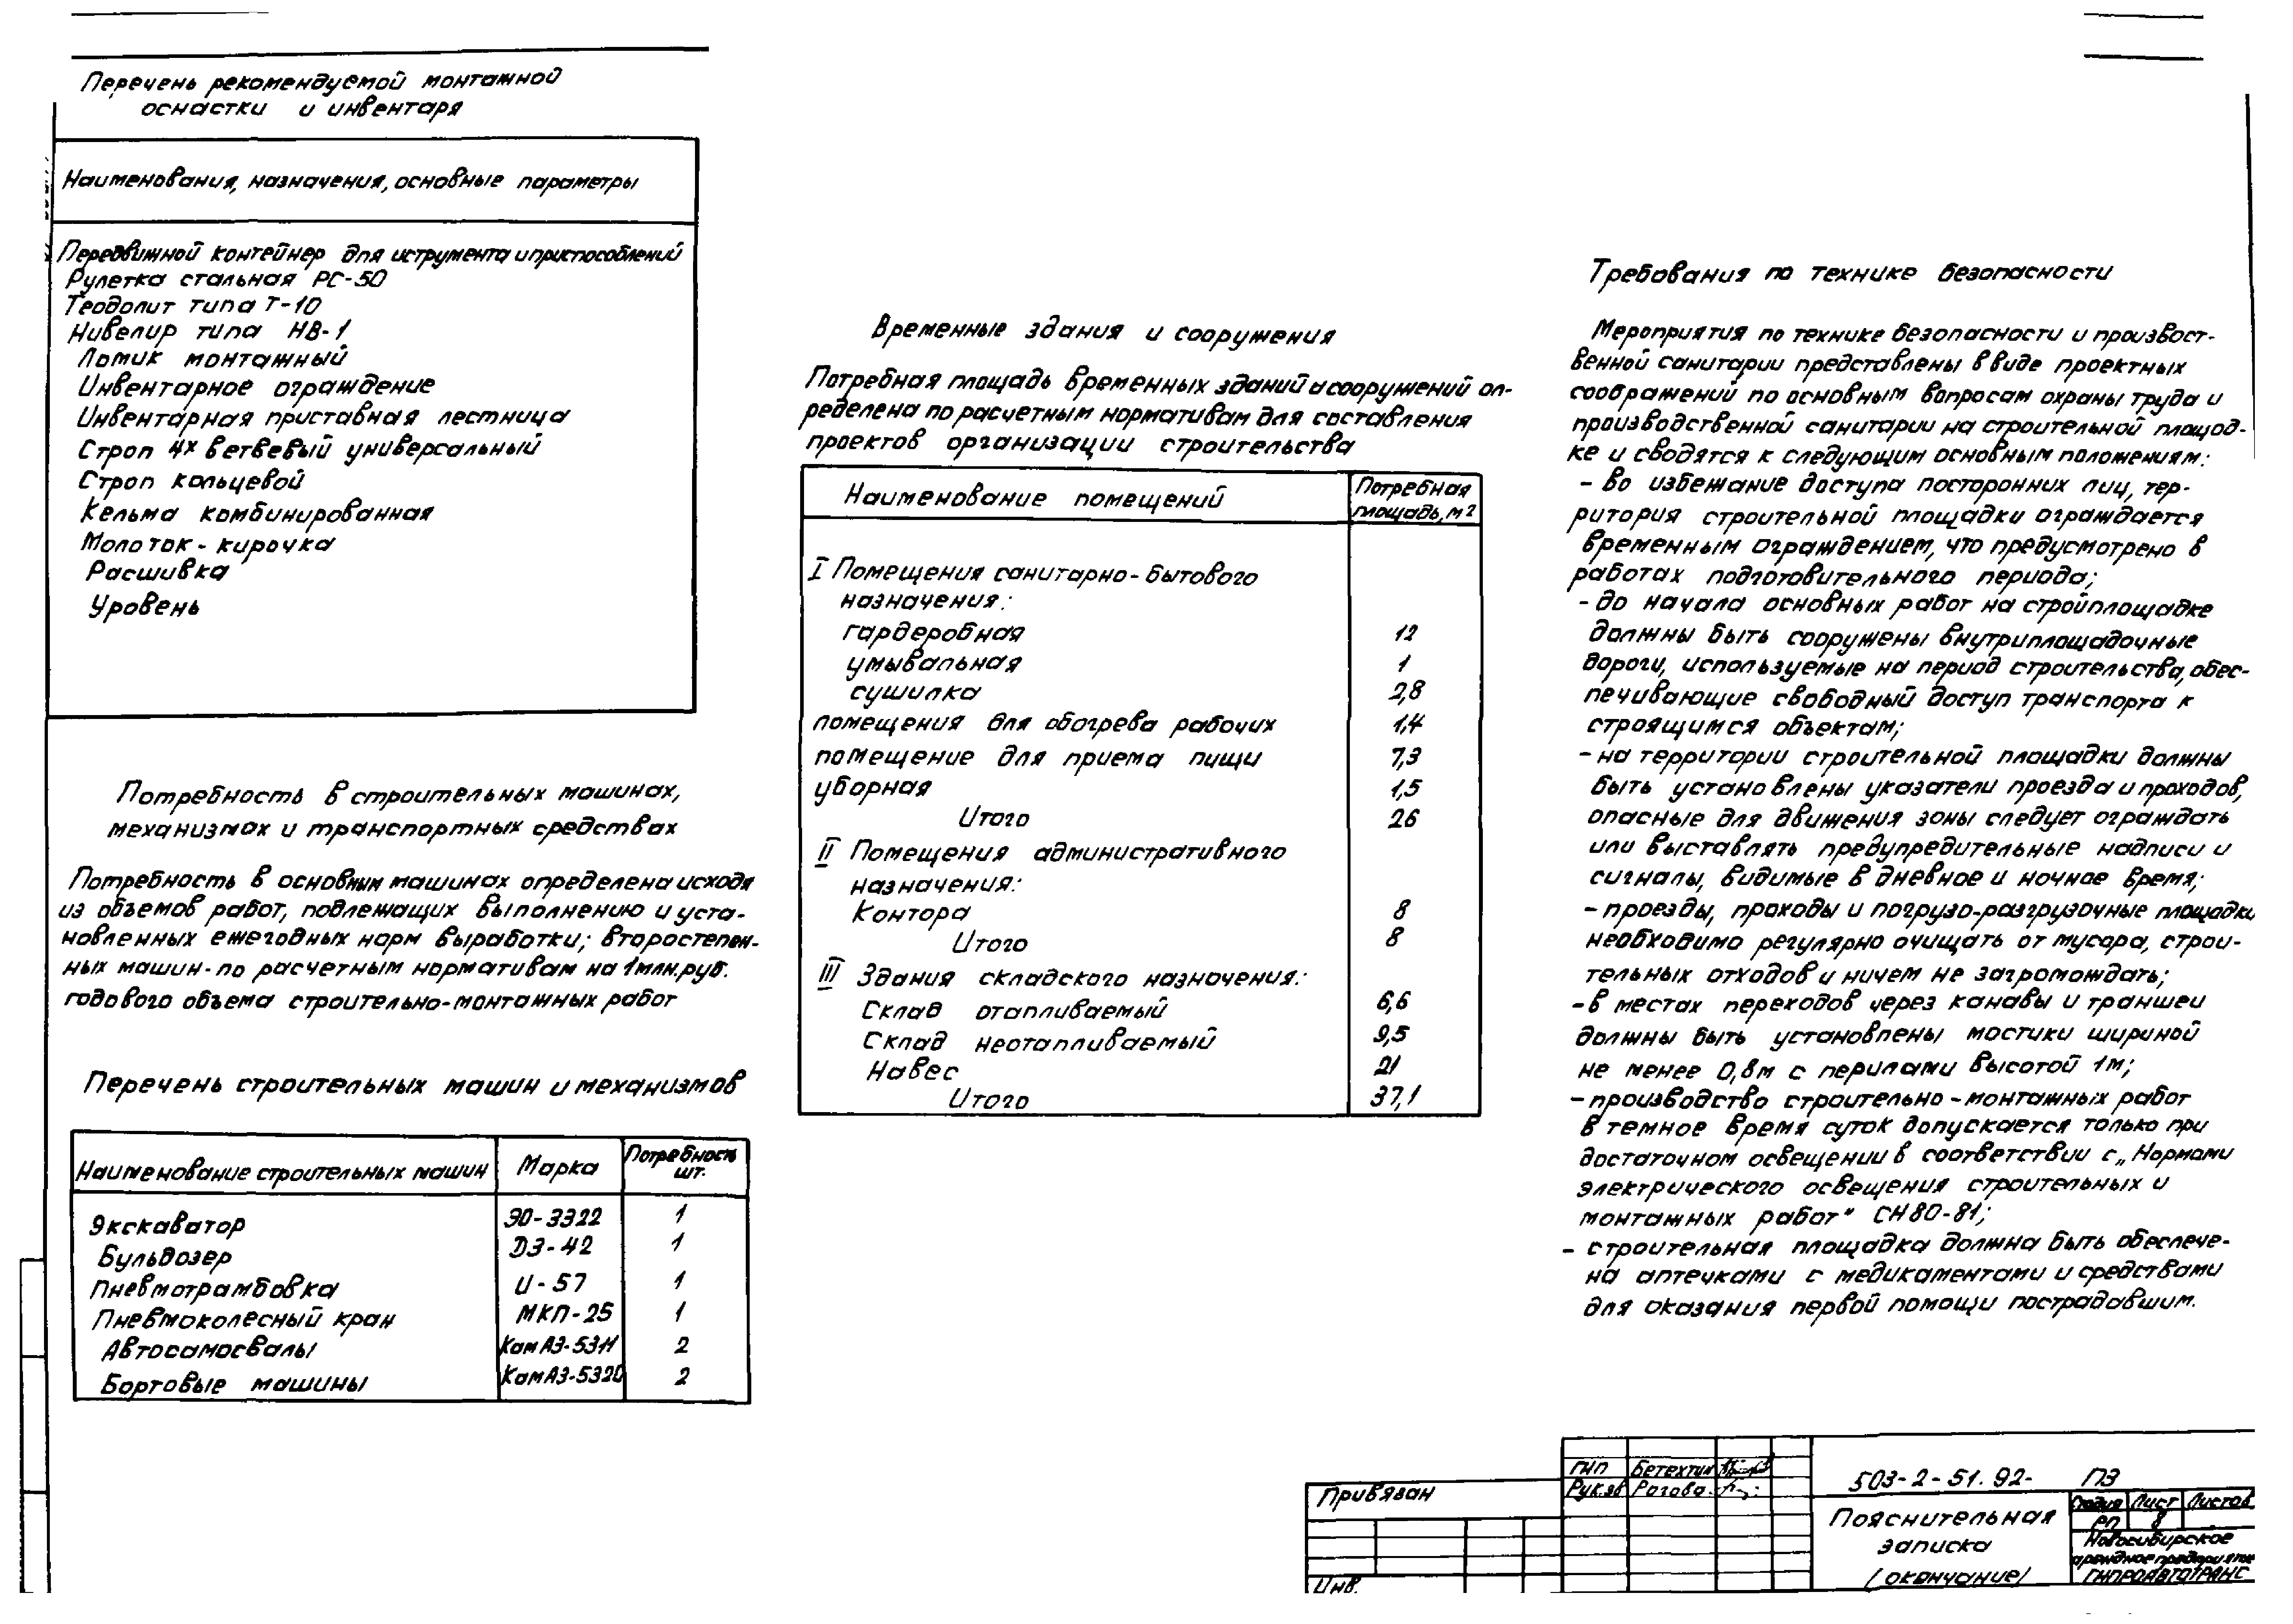 Перечень рекомендуемой монтажной
оснастки и инвентаря
Наименования, назначения, основные параметры
Передвижной контейнер для иструмента и приспособлений
Рулетка стальная РС-50
Теодолит типа Т-10
Нивелир типа НВ-1
Ломик монтажный
Инвентарное ограждение
Инвентарная приставная лестница
Строп 4х ветвевый универсальный
Строп кольцевой
Кельма комбинированная
Молоток-кирочка
Расшивка
Уровень
Потребность в строительных машинах,
механизмах и транспортных средствах
Потребность в основным машинах определена исходя
из объемов работ, подлежащих выполнению и уста-
новленных ежегодных норм выработки; второстепен-
ных машин-по расчетным нормативам на 1млн.руб.
годового объема строительно-монтажных работ
Перечень строительных машин и механизмов
Наименование строительных машин Марка Потребность шт.
Экскаватор ЭО-3322 1
Бульдозер ДЗ-42 1
Пневмотрамбовка И-57 1
Пневмоколесный кран МКП-25 1
Автосамосвалы КамАЗ-5311 2
Бортовые машины КамАЗ-5320 2
Временные здания и сооружения
Потребная площадь временных зданий и сооружений оп-
ределена по расчетным нормативам для составления
проектов организации строительства
Наименование помещений Потребная площадь, м2
I Помещения санитарно-бытового
назначения:
гардеробная 12
умывальная 1
сушилка 2,8
помещения для обогрева рабочих 1,4
помещение для приема пищи 7,3
уборная 1,5
Итого 26
II Помещения административного
назначения:
Контора 8
Итого 8
III Здания складского назначения:
Склад отапливаемый 6,6
Склад неотапливаемый 9,5
Навес 21
Итого 37,1
Требования по технике безопасности
Мероприятия по технике безопасности и произвост-
венной санитарии представлены в виде проектных
соображений по основным вопросам охраны труда и
производственной санитарии на строительной площад-
ке и сводятся к следующим основным положениям:
- во избежание доступа посторонних лиц, тер-
ритория строительной площадки ограждается
временным ограждением, что предусмотрено в
работах подготовительного периода;
- до начала основных работ на стройплощадке
должны быть сооружены внутриплощадочные
дороги, используемые на период строительства, обес-
печивающие свободный доступ транспорта к
строящимся объектам;
- на территории строительной площадки должны
быть установлены указатели проезда и проходов,
опасные для движения зоны следует ограждать
или выставлять предупредительные надписи и
сигналы, видимые в дневное и ночное время;
- проезды, проходы и погрузо-разгрузочные площадки
необходимо регулярно очищать от мусора, строи-
тельных отходов и ничем не загромождать;
- в местах переходов через канавы и траншеи
должны быть установлены мостики шириной
не менее 0,8м с перилами высотой 1м;
- производство строительно-монтажных работ
в темное время суток допускается только при
достаточном освещении в соответствии с „Нормами
электрического освещения строительных и
монтажных работ" СН 80-81;
- строительная площадка должна быть обеспече-
на аптечками с медикаментами и средствами
для оказания первой помощи пострадавшим.
Привязан
Инв.
ГИП Бетехтин
Рук.зв Рогова
503-2-51.92- ПЗ
Пояснительная
записка
/окончание/
Стадия Лист Листов
РП 8
Новосибирское
арендное предприятие
ГИПРОАВТОТРАНС